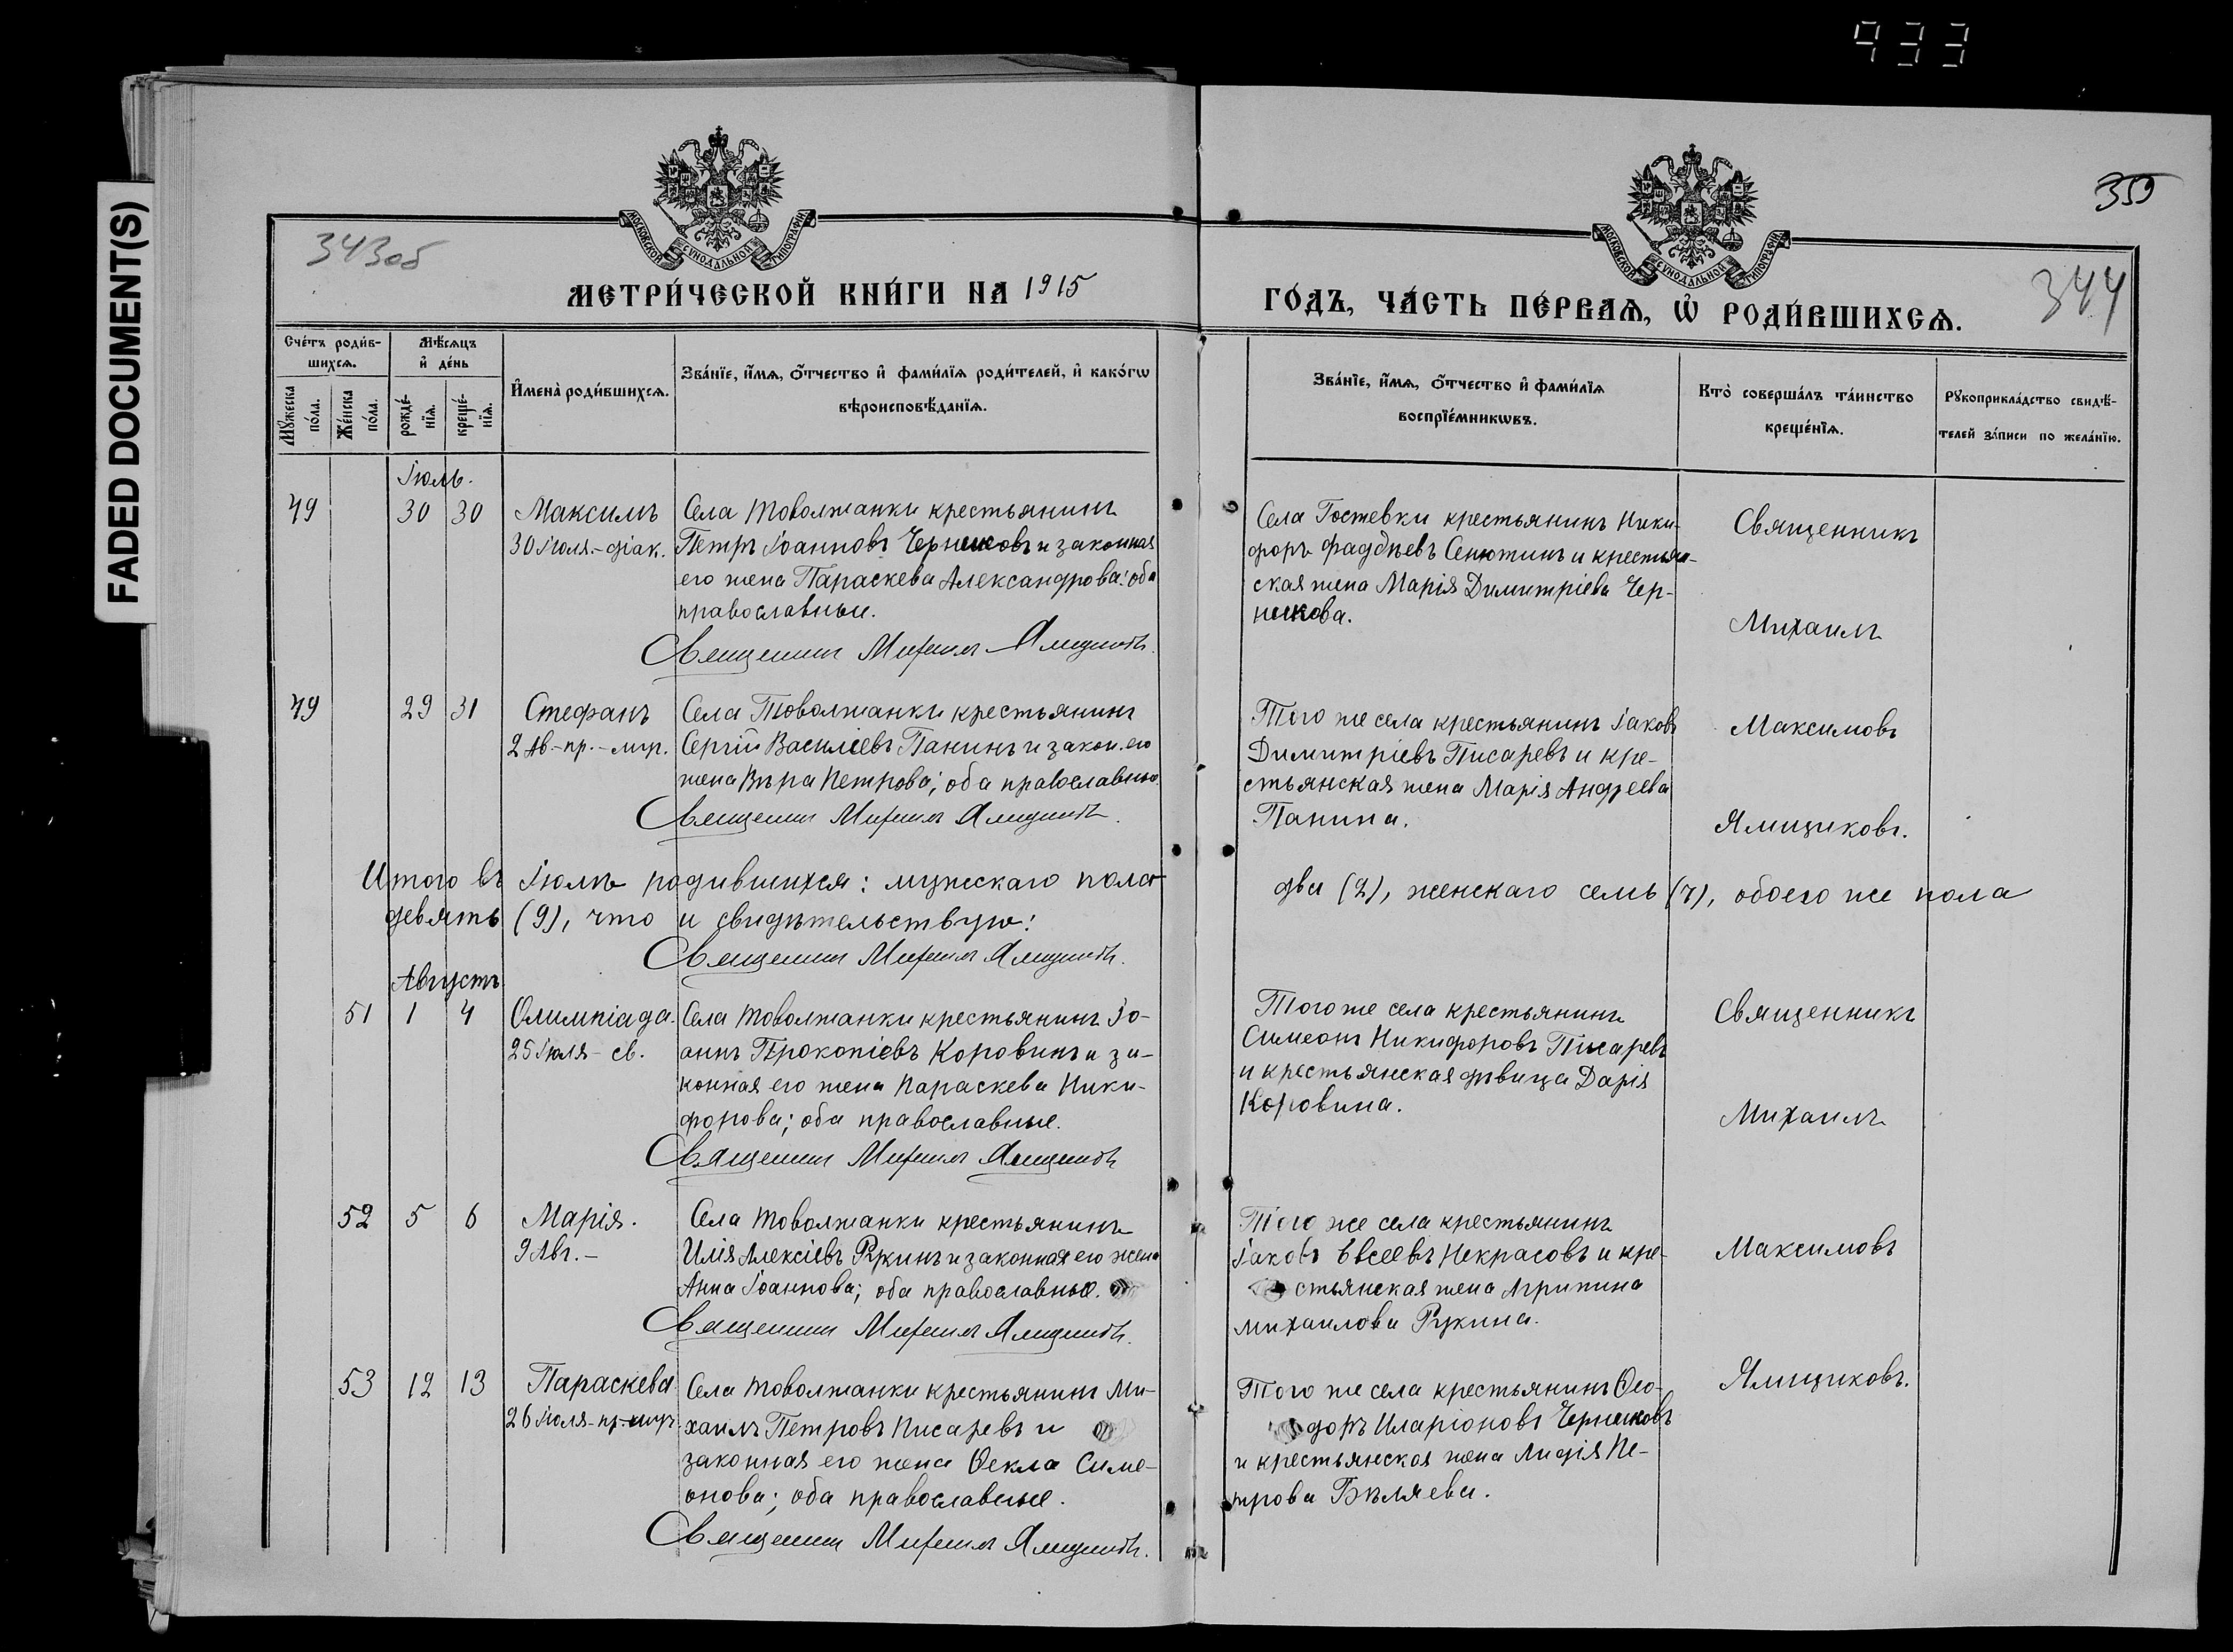 933
FADED DOCUMENT(S)
359
343об
344
МОСКОВСКОЙ СѴНОДАЛЬНОЙ ТИПОГРАФІИ
МОСКОВСКОЙ СѴНОДАЛЬНОЙ ТИПОГРАФІИ
МЕТРИ́ЧЕСКОЙ КНИ́ГИ НА 1915
ГО́ДЪ, ЧА́СТЬ ПЕ́РВАѦ, Ѽ РОДИ́ВШИХСѦ.
Сче́тъ роди́в-
шихсѧ.
Мꙋ́жеска по́ла.
Же́нска по́ла.
Мѣ́сѧцъ
и҆ де́нь
рожде́-
нїѧ.
креще́-
нїѧ.
И҆мена̀ роди́вшихсѧ.
Зва́нїе, и҆́мѧ, о҆́тчество и҆ фами́лїѧ роди́телей, и҆ како́гѡ
вѣроисповѣ́данїѧ.
Зва́нїе, и҆́мѧ, о҆́тчество и҆ фами́лїѧ
воспрїе́мникѡвъ.
Кто̀ соверша́лъ та́инство
креще́нїѧ.
Рꙋкоприкла́дство свидѣ́-
телей за́писи по жела́нїю.
Іюль.
49 30 30 Максимъ
30 Іюля.-діак.
Села Товолжанки крестьянинъ
Петръ Іоанновъ Черниковъ и законная
его жена Параскева Александрова: оба
православные.
Священникъ Михаилъ Ямщиковъ.
Села Гостевки крестьянинъ Ники-
форъ Фаддѣевъ Сенютинъ и крестьян-
ская жена Марія Димитріева Чер-
никова.
Священникъ
Михаилъ
49 29 31 Стефанъ
2 Ав.-пр.-муч.
Села Товолжанки крестьянинъ
Сергій Василіевъ Панинъ и закон. его
жена Вѣра Петрова; оба православные
Священникъ Михаилъ Ямщиковъ.
Того же села крестьянинъ Іаковъ
Димитріевъ Писаревъ и кре-
стьянская жена Марія Андреева
Панина.
Максимовъ
Ямщиковъ.
Итого въ Іюлѣ родившихся: мужескаго пола два (2), женскаго семь (7), обоего же пола
девять (9), что и свидѣтельствую:
Священникъ Михаилъ Ямщиковъ.
Августъ
51 1 4 Олимпіада.
25 Іюля - св.
Села Товолжанки крестьянинъ Іо-
аннъ Прокопіевъ Коровинъ и за-
конная его жена Параскева Ники-
форова; оба православные.
Священникъ Михаилъ Ямщиковъ
Того же села крестьянинъ
Симеонъ Никифоровъ Писаревъ
и крестьянская дѣвица Дарія
Коровина.
Священникъ
Михаилъ
52 5 6 Марія.
9 Авг.-
Села Товолжанки крестьянинъ
Илія Алексіевъ Рукинъ и законная его жена
Анна Іоаннова; оба православные.
Священникъ Михаилъ Ямщиковъ.
Того же села крестьянинъ
Іаковъ Евсеевъ Некрасовъ и кре-
стьянская жена Агрипина
Михаилова Рукина.
Максимовъ
53 12 13 Параскева
26 Іюля-пр-муч.
Села Товолжанки крестьянинъ Ми-
хаилъ Петровъ Писаревъ и
законная его жена Ѳекла Симе-
онова; оба православные.
Священникъ Михаилъ Ямщиковъ.
Того же села крестьянинъ Ѳео-
доръ Иларіоновъ Черниковъ
и крестьянская жена Лидія Пе-
трова Бѣляева.
Ямщиковъ.